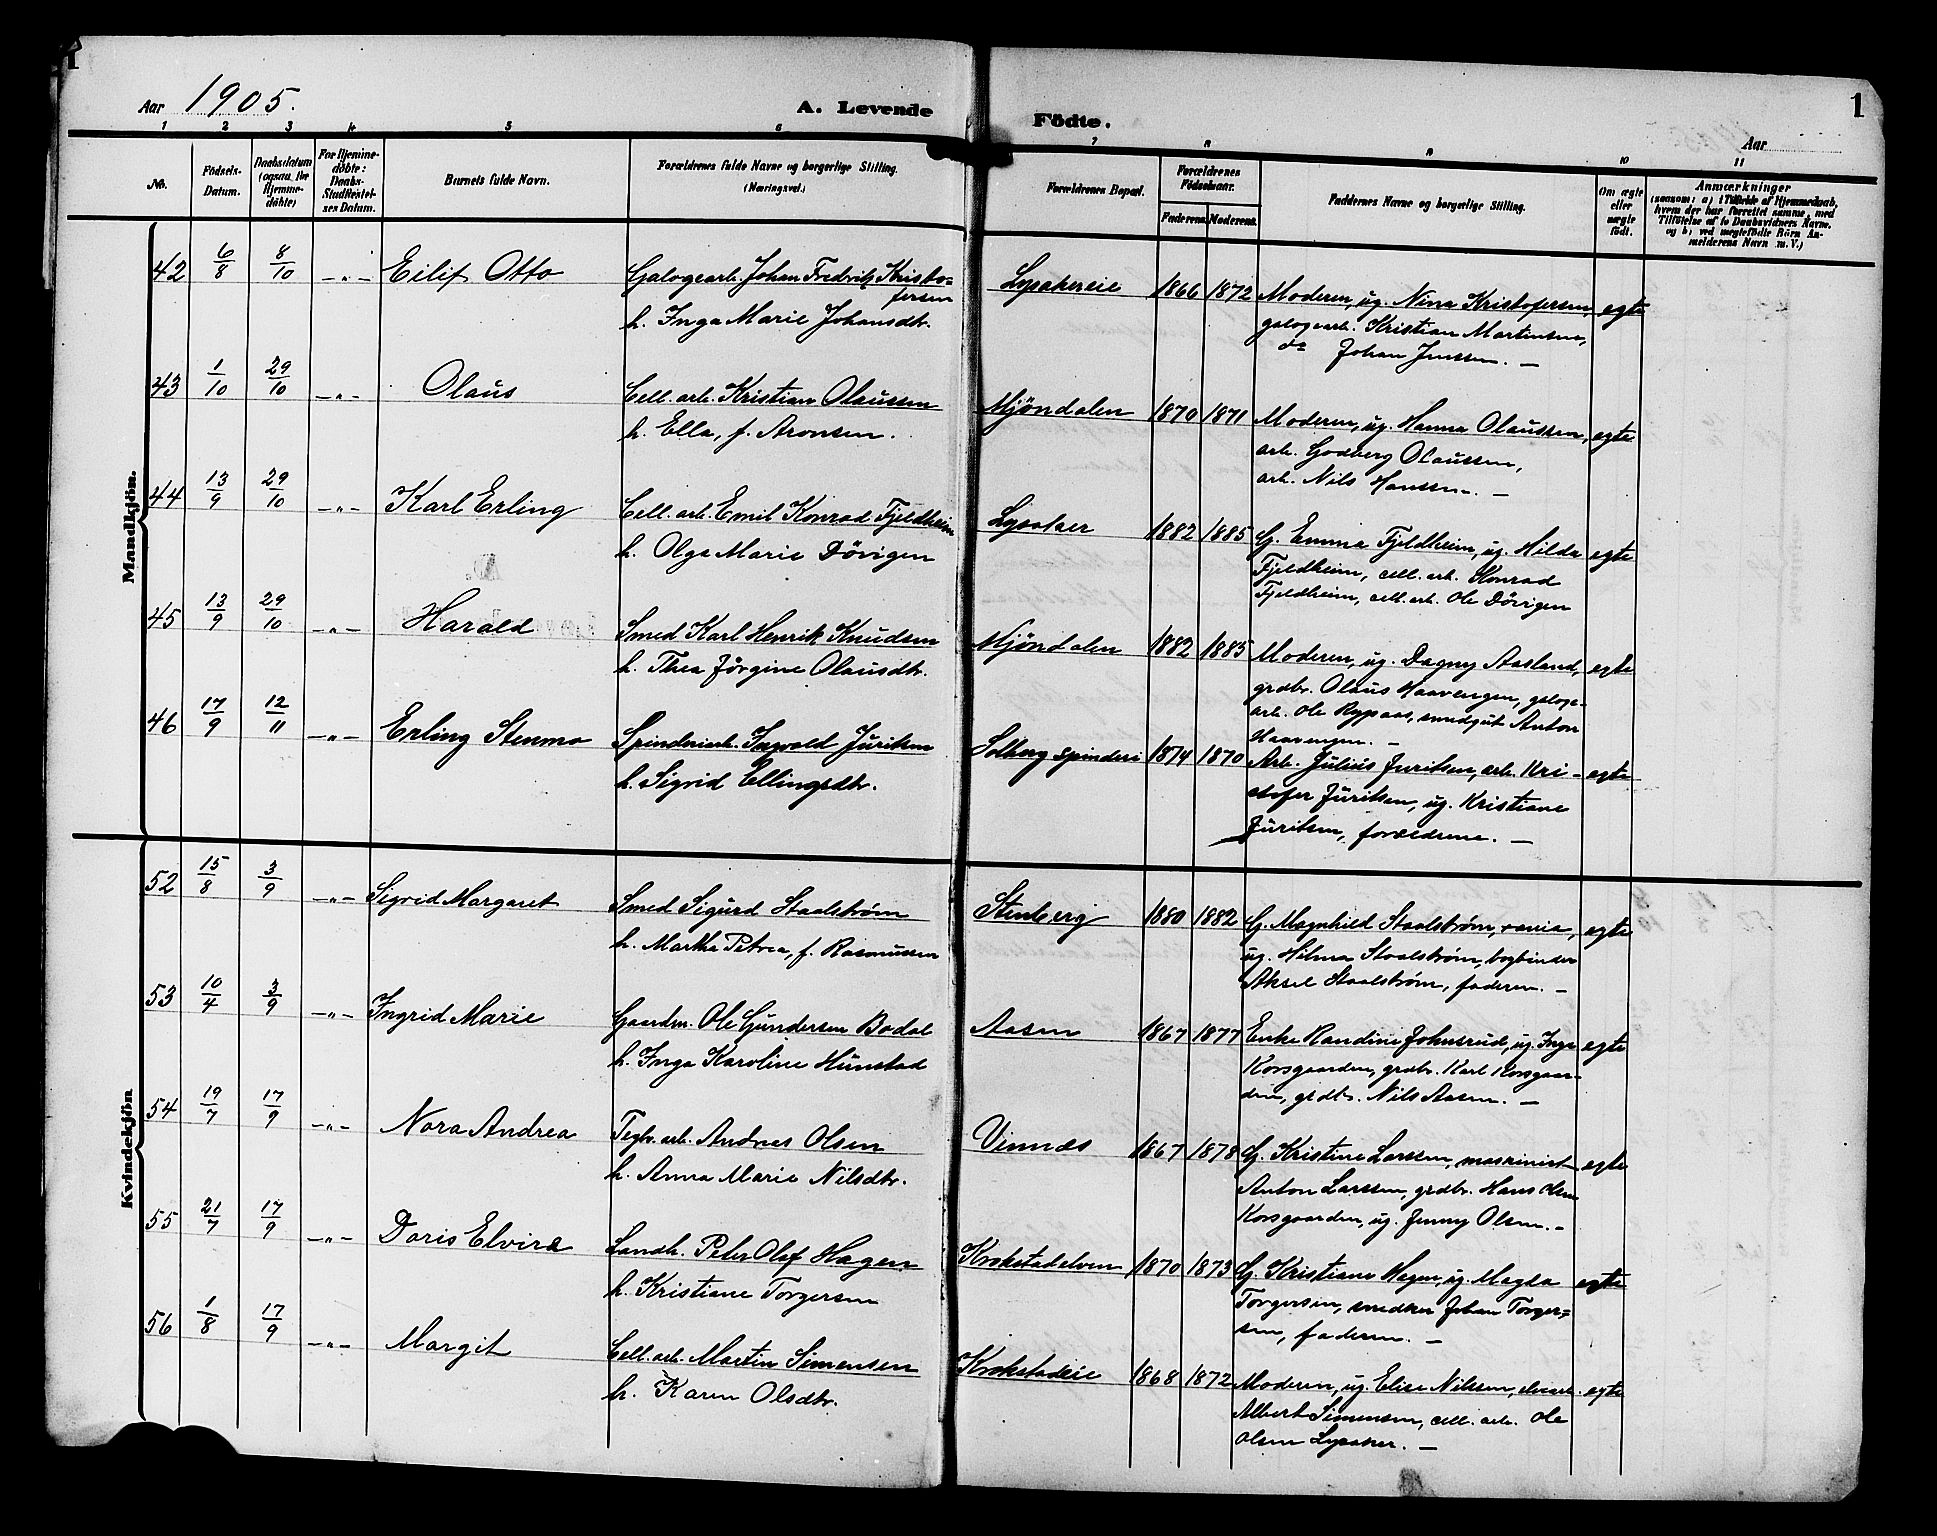 1
Aar 1905.
A. Levende
Födte.
Aar
1
1 2 3 4 5 6 7 8 9 10 11
No.
Födsels-
Datum.
Daabsdatum
(ogsaa for
Hjemme-
döbte)
For Hjemme-
döbte:
Daabs-
Stadfæstel-
ses Datum.
Barnets fulde Navn.
Forældrenes fulde Navne og borgerlige Stilling.
(Næringsvei.)
Forældrenes Bopæl.
Forældrenes
Födselsaar.
Faderens. Moderens.
Faddernes Navne og borgerlige Stilling.
Om ægte
eller
uægte
födt.
Anmærkninger
(saasom: a) i Tilfælde af Hjemmedaab,
hvem der har forrettet samme, med
Tilföielse af to Daabsvidners Navne,
og b) ved uægtefödte Börn An-
melderens Navn m. V.)
Mandkjön.
42 6/8 8/10 -"- Eilif Otto Galogearb. Johan Fredrik Kristo-
fersen
h. Inga Marie Johansdtr.
Lysakereie 1866 1872 Moderen, ug. Nina Kristofersen, egte
galogearb. Kristian Martinsen,
do Johan Jenssen. -
43 1/10 29/10 -"- Olaus Cell. arb. Kristian Olaussen
h. Ella, f. Aronsen.
Mjöndalen 1870 1871 Moderen, ug. Hanna Olaussen, egte
arb. Godberg Olaussen,
arb. Nils Hanssen. -
44 13/9 29/10 -"- Karl Erling Cell. arb. Emil Konrad Fjeldheim
h. Olga Marie Dövigen
Lysaker 1882 1885 G. Emma Fjeldheim, ug. Hilda egte
Fjeldheim, cell. arb. Konrad
Fjeldheim, cell. arb. Ole Dövigen
45 13/9 29/10 -"- Harald Smed Karl Henrik Knudsen
h. Thea Jørgine Olausdtr.
Mjöndalen 1882 1885 Moderen, ug. Dagny Aasland, egte
grdbr. Olaus Haavengen, galoge-
arb. Ole Rypaas, smedgut Anton
Haavengen. -
46 17/9 12/11 -"- Erling Stenmo Spinderiarb. Ingvald Juriksen
h. Sigrid Ellingsdtr.
Solberg spinderi 1874 1870 Arb. Julius Juriksen, arb. Kri- egte
stofer Juriksen, ug. Kristiane
Juriksen, forældrene. -
Kvindekjön
52 15/8 3/9 -"- Sigrid Margaret Smed Sigurd Staalstrøm
h. Martha Petrea, f. Rasmussen
Stenberg 1880 1882 G. Magnhild Staalstrøm, egte
ug. Hilma Staalstrøm, bogbinder
Aksel Staalstrøm, faderen. -
53 10/4 3/9 -"- Ingrid Marie Gaardm. Ole Gundersen Bodal
h. Inga Karoline Hunstad
Aasen 1867 1877 Enke Randine Johnsrud, ug. Inga egte
Korsgaarden, grdbr. Karl Korsgaar-
den, grdbr. Nils Aasen. -
54 19/7 17/9 -"- Nora Andrea Teglv. arb. Andreas Olsen
h. Anna Marie Nilsdtr.
Vinnæs 1867 1878 G. Kristine Larssen, maskinist egte
Anton Larssen, grdbr. Hans Olsen
Korsgaarden, ug. Jenny Olsen. -
55 21/7 17/9 -"- Doris Elvira Landh. Peter Olaf Hagen
h. Kristiane Torgersen
Krokstadelven 1870 1873 G. Kristiane Hagen, ug. Magda egte
Torgersen, snedker Johan Torger-
sen, faderen. -
56 1/8 17/9 -"- Margit Cell. arb. Martin Simensen
h. Karen Olsdtr.
Krokstadeie 1868 1872 Moderen, ug. Elise Nilssen, egte
Albert Simensen, cell. arb. Ole
Olsen Lysaker. -